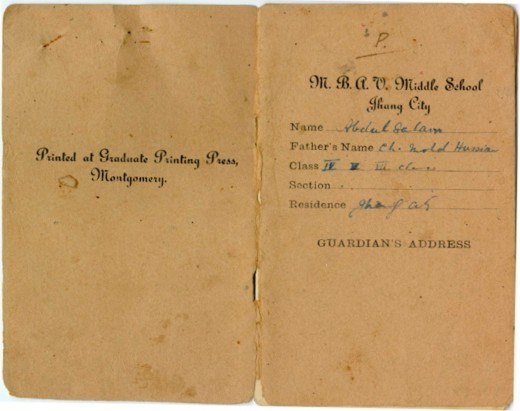 Printed at Graduate Printing Press,
Montgomery.
P.
M. B. A. V. Middle School
Jhang City
Name Abdul Salam
Father's Name Ch. Mohd Hussain
Class IV V
Section
Residence Jhang City
GUARDIAN'S ADDRESS